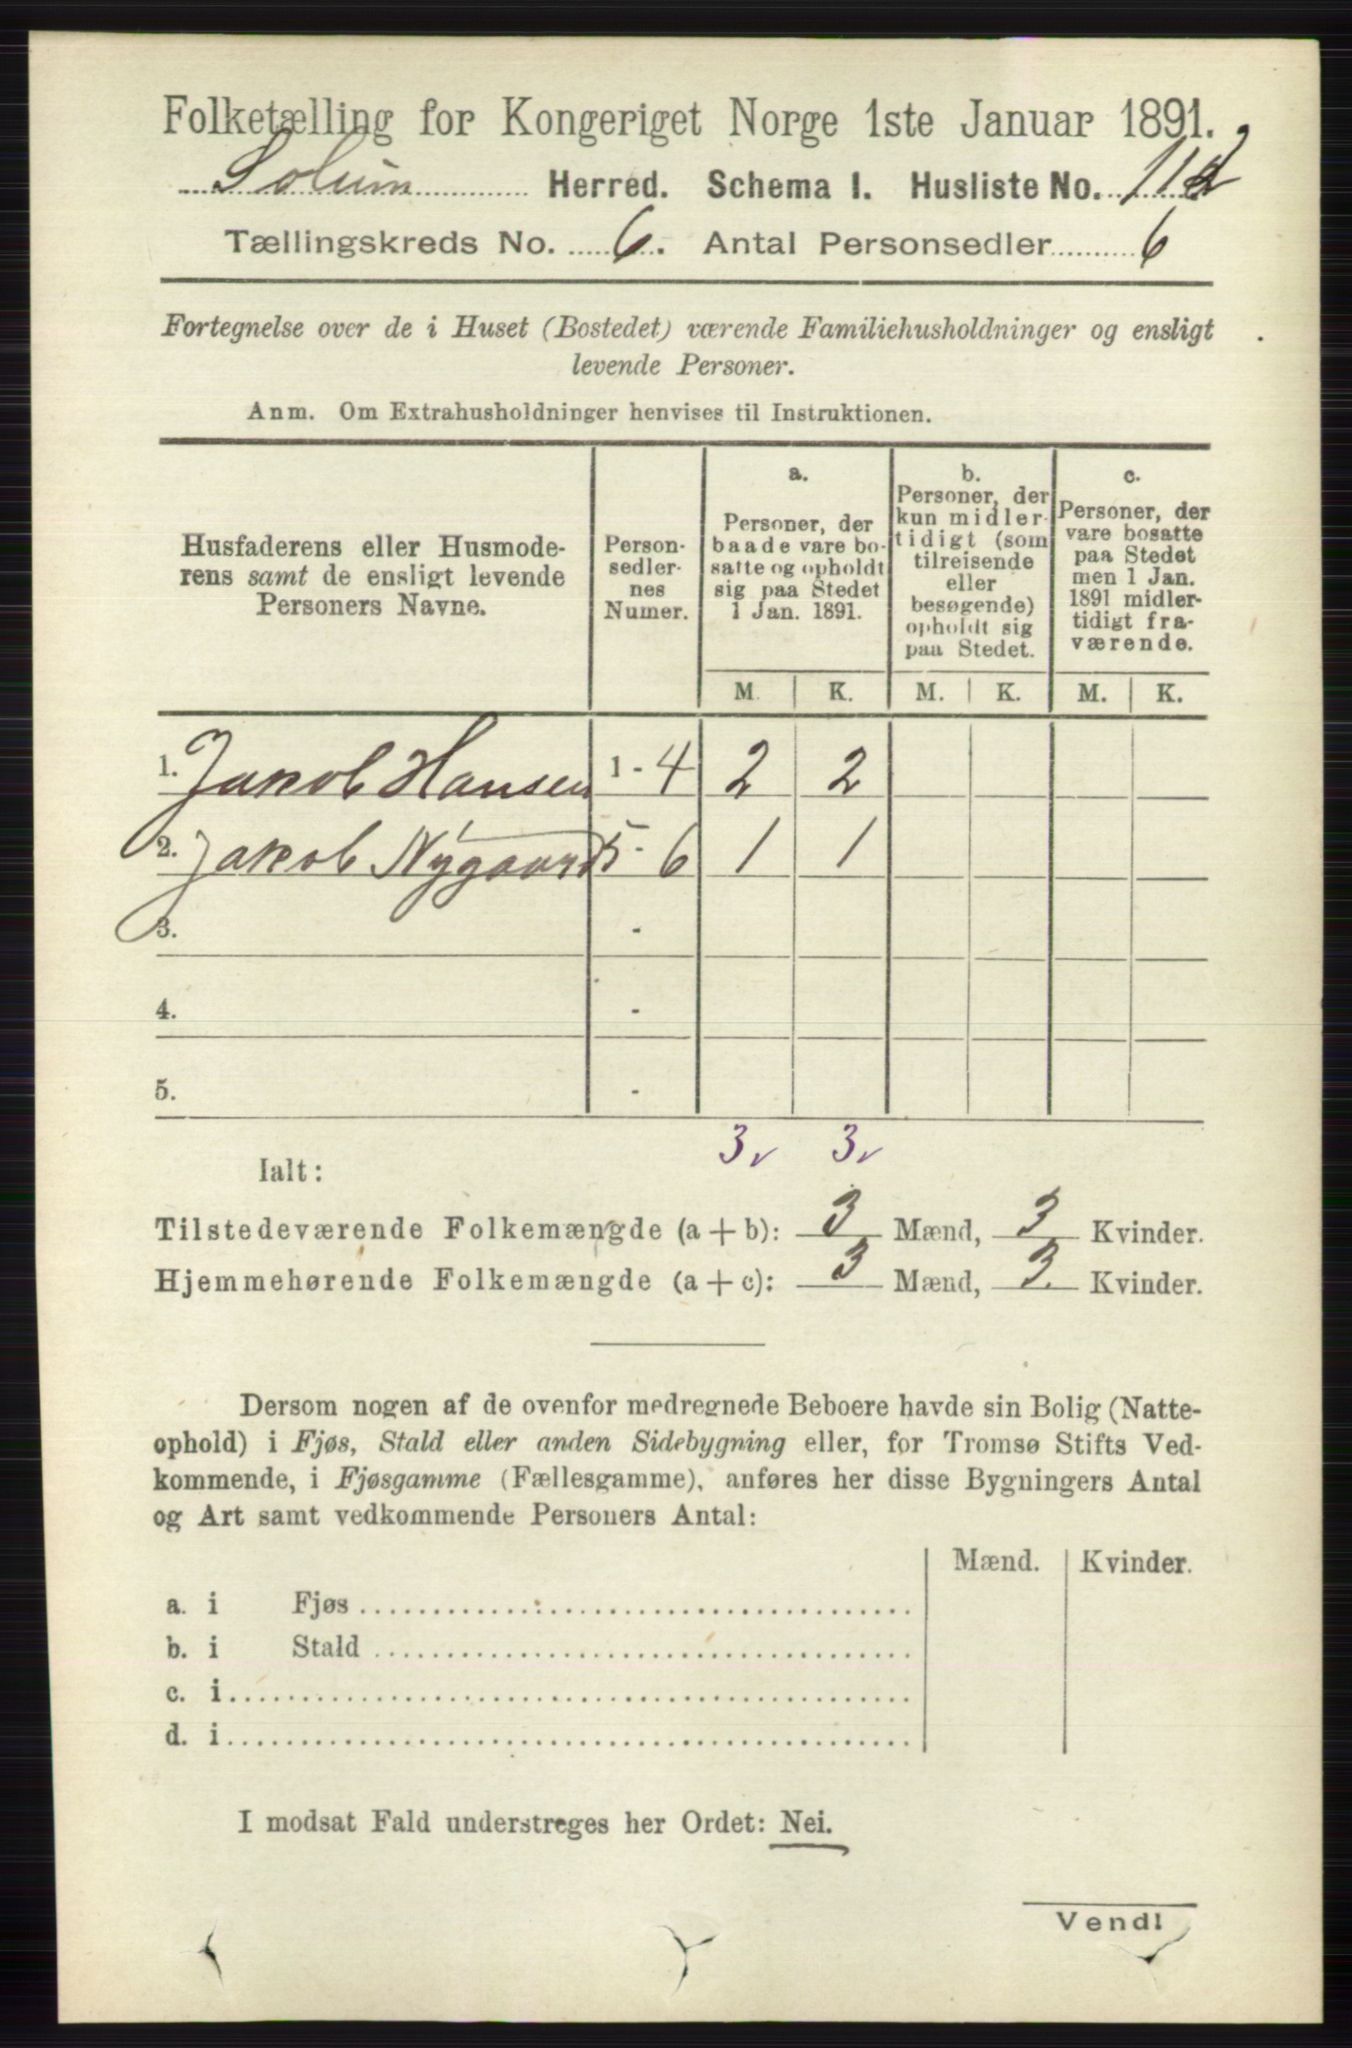 Folketælling for Kongeriget Norge 1ste Januar 1891.
Solum Herred. Schema I. Husliste No. 112
Tællingskreds No. 6. Antal Personsedler 6
Fortegnelse over de i Huset (Bostedet) værende Familiehusholdninger og ensligt
levende Personer.
Anm. Om Extrahusholdninger henvises til Instruktionen.
Husfaderens eller Husmode-
rens samt de ensligt levende
Personers Navne.
Person-
sedler-
nes
Numer.
a.
Personer, der
baade vare bo-
satte og opholdt
sig paa Stedet
1 Jan. 1891.
b.
Personer, der
kun midler-
tidigt (som
tilreisende
eller
besøgende)
opholdt sig
paa Stedet.
c.
Personer, der
vare bosatte
paa Stedet
men 1 Jan.
1891 midler-
tidigt fra-
værende.
M. K. M. K. M. K.
1. Jakob Hansen 1 - 4 2 2
2. Jakob Nygaard 5 - 6 1 1
3. -
4. -
5. -
3 3
Ialt:
Tilstedeværende Folkemængde (a + b): 3 Mænd, 3 Kvinder.
Hjemmehørende Folkemængde (a + c): 3 Mænd, 3 Kvinder.
Dersom nogen af de ovenfor medregnede Beboere havde sin Bolig (Natte-
ophold) i Fjøs, Stald eller anden Sidebygning eller, for Tromsø Stifts Ved-
kommende, i Fjøsgamme (Fællesgamme), anføres her disse Bygningers Antal
og Art samt vedkommende Personers Antal:
Mænd. Kvinder.
a. i Fjøs
b. i Stald
c. i
d. i
I modsat Fald understreges her Ordet: Nei.
Vend!